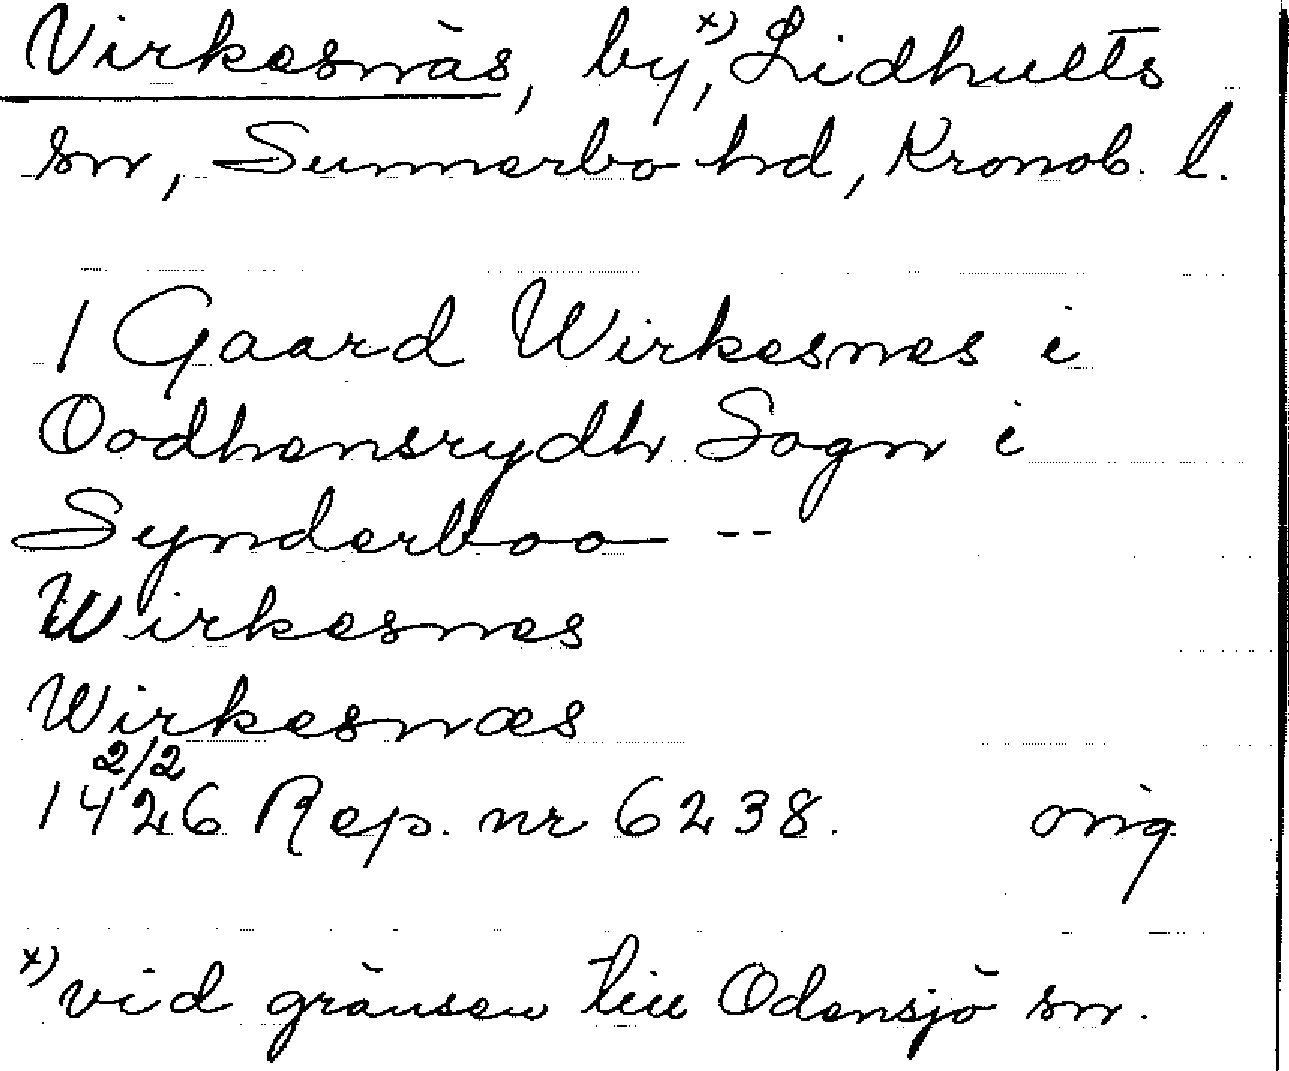 Virkesnäs, by,ˣ⁾ Lidhults
sn, Sunnerbo hd, Kronob. l.
1 Gaard Wirkesnes i
Oodhensrydh Sogn i
Synderboo --
Wirkesnes
Wirkesnæs
1426 2/2 Rep. nr 6238. orig
ˣ⁾ vid gränsen till Odensjö sn.